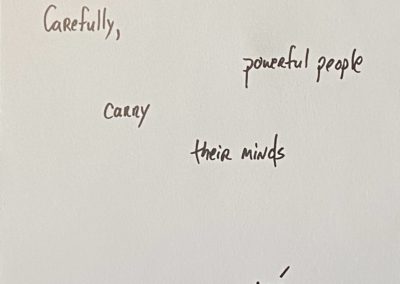 Carefully,
powerful people
carry
their minds